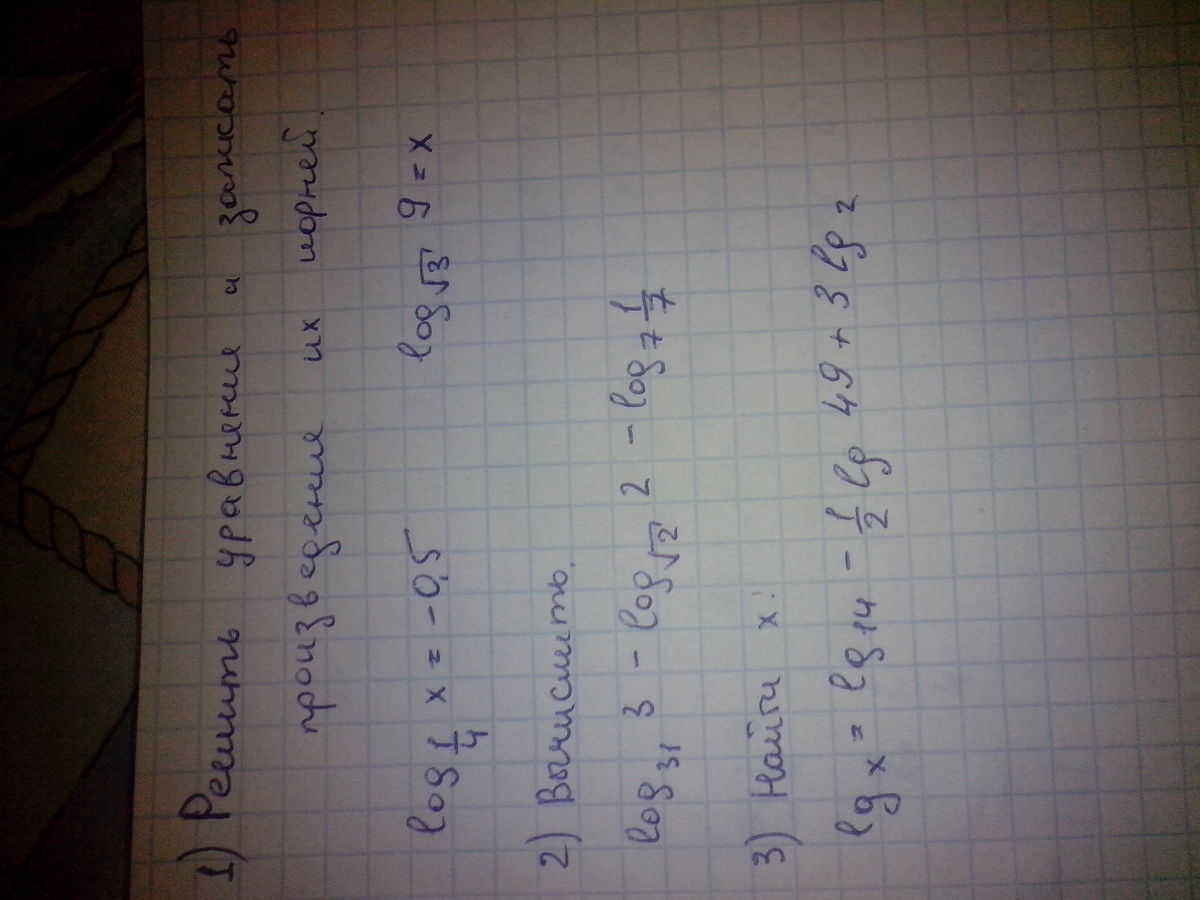 1) Решить уравнения и
произведение их корней.
log 1/4 x = -0,5 log √3 9 = x
2) Вычислить.
log 31 3 - log √2 2 - log 7 1/7
3) Найти x:
lg x = lg 14 - 1/2 lg 49 + 3 lg 2